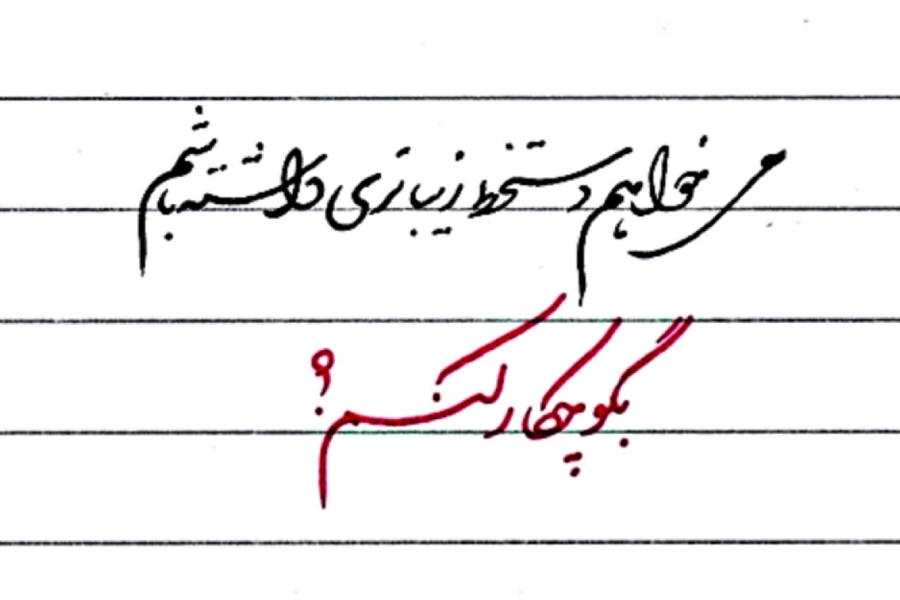 می خواهم دستخط زیباتری داشته باشم
بگو چکار کنم؟